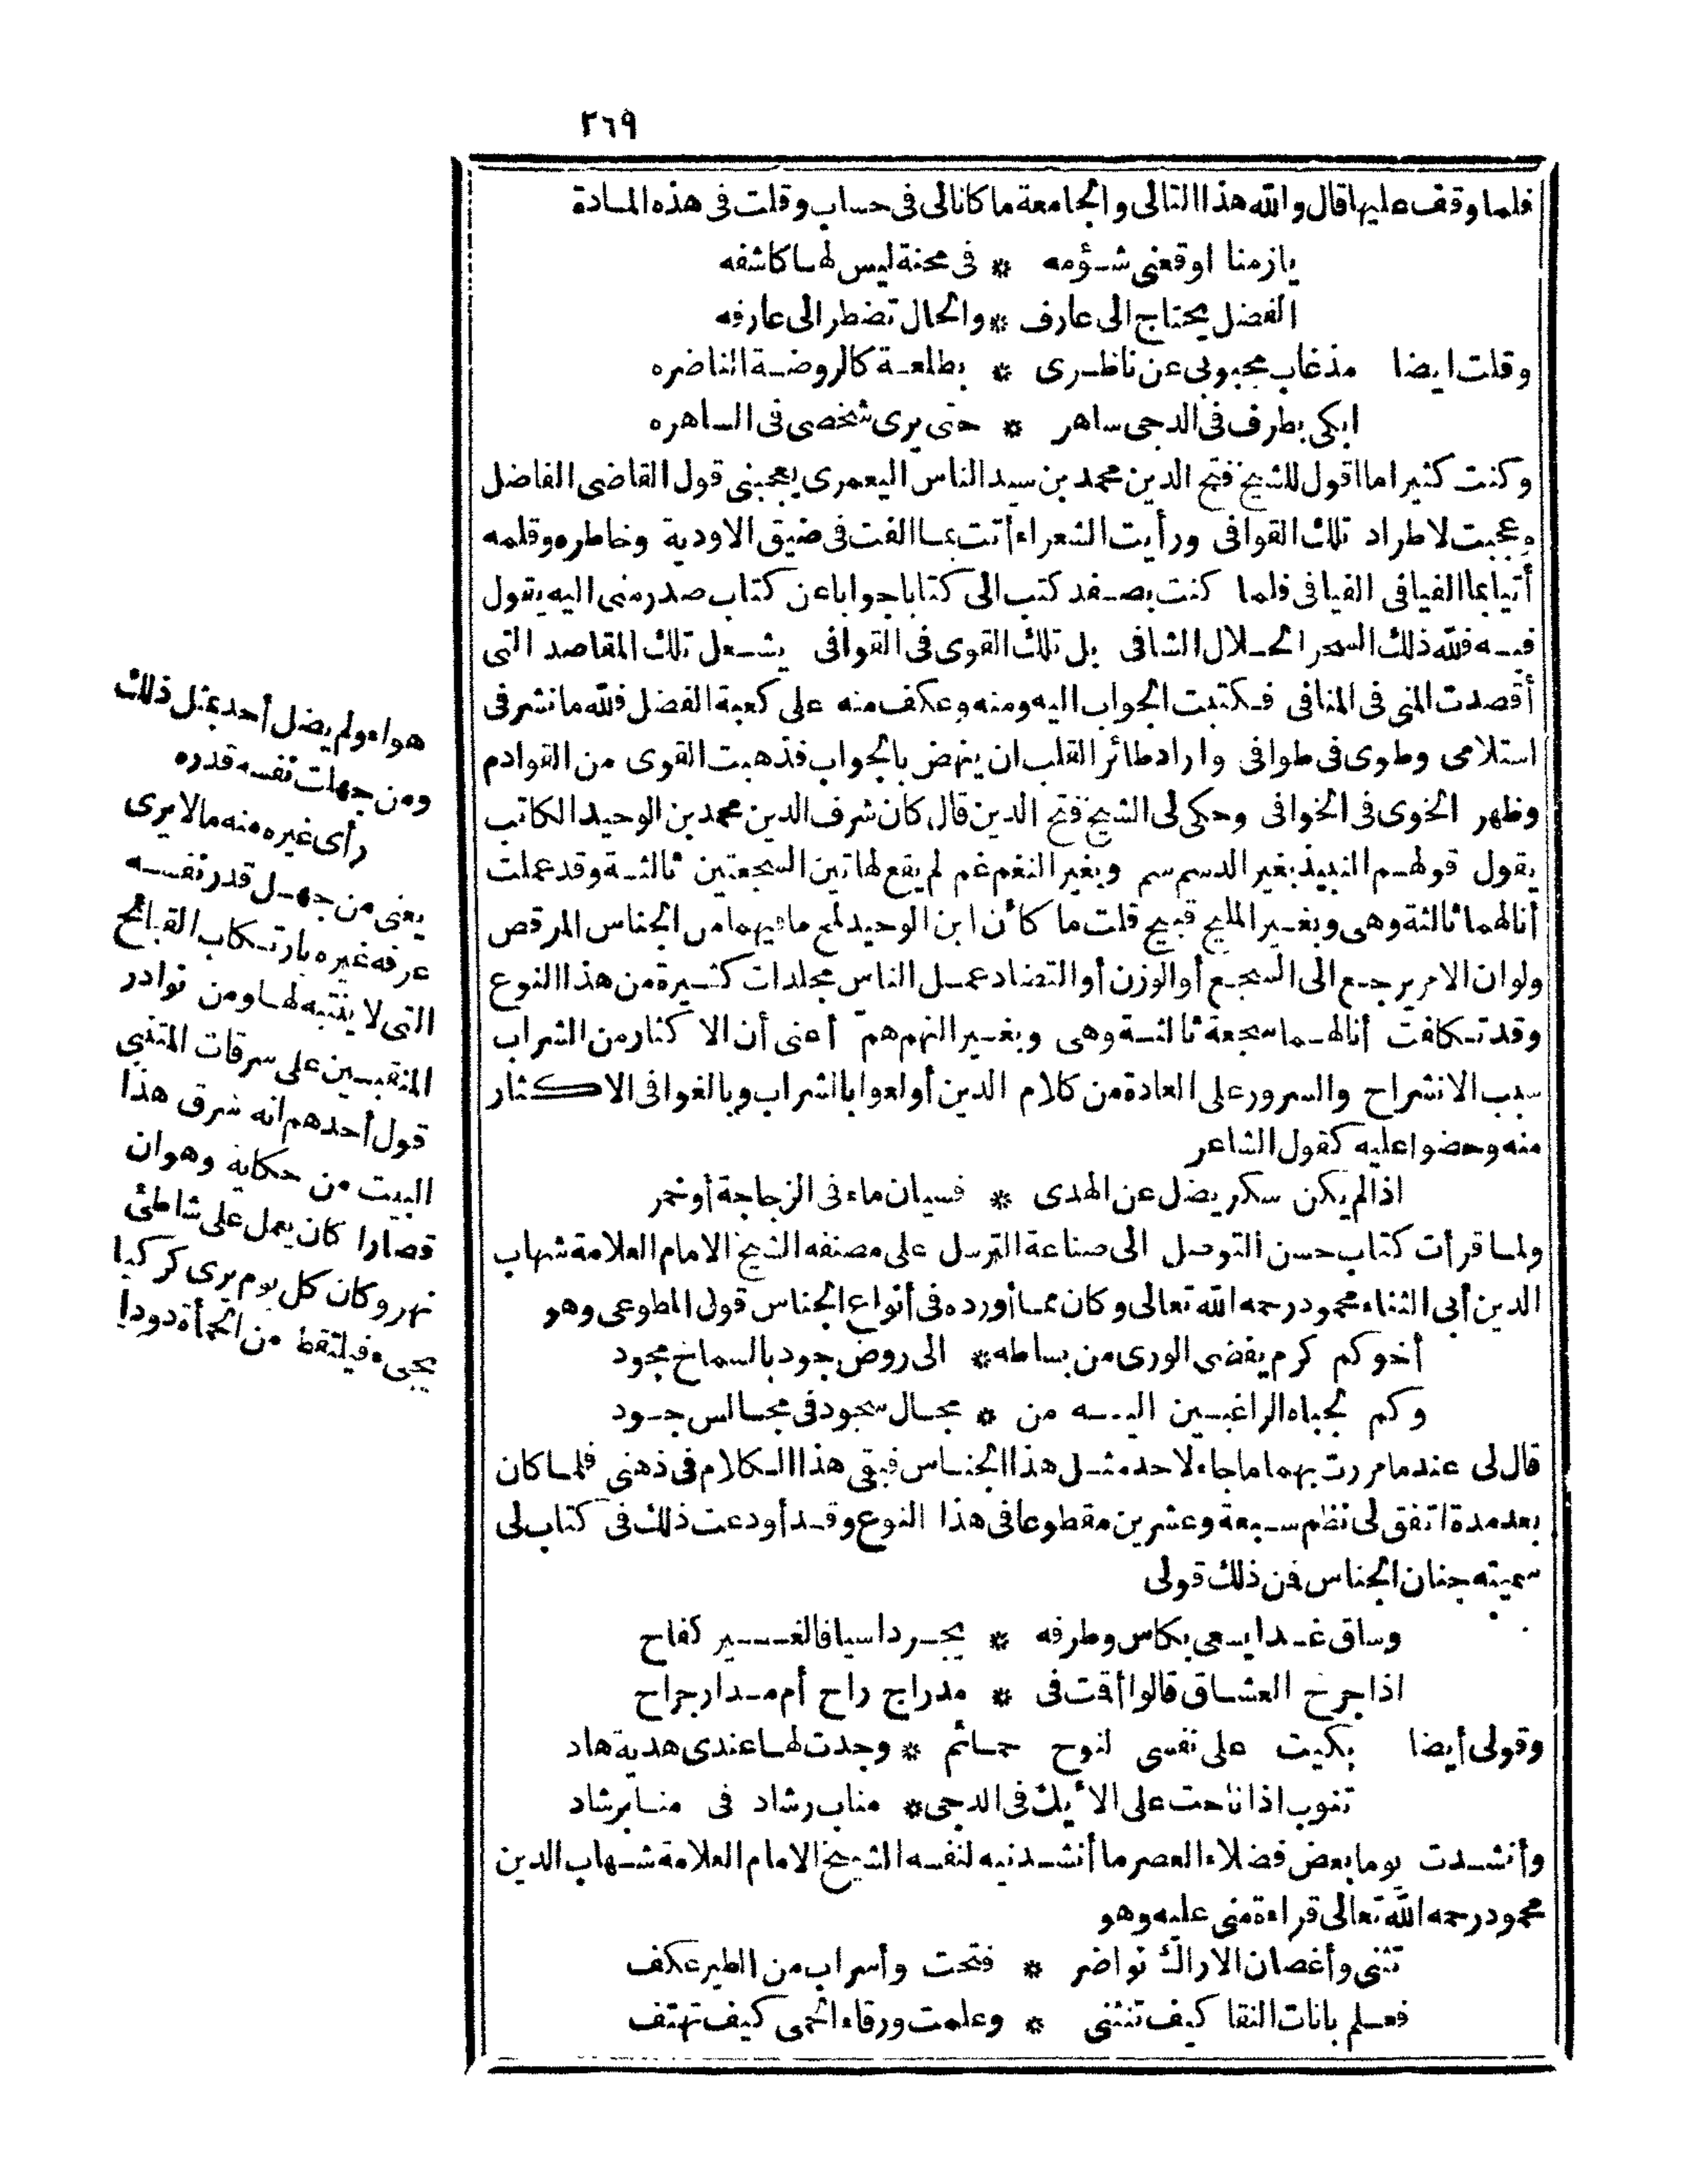 ٢٦٩
فلما وقف عليها قال والله هذا التالى والجامعة ما كانا لى فى حساب وقلت فى هذه المادة
يا زمنا اوقعنى شؤمه * فى محنة ليس لها كاشفه
الفضل يحتاج الى عارف * والحال تضطر الى عارفه
وقلت ايضا مذ غاب محبوبى عن ناظرى * بطلعة كالروضة الناضره
ابكى بطرف فى الدجى ساهر * حتى يرى شخصى فى الساهره
وكنت كثيرا ما اقول للشيخ فتح الدين محمد بن سيد الناس اليعمرى يعجبنى قول القاضى الفاضل
وعجبت لاطراد تلك القوافى ورأيت الشعراء أتت بما الفت فى ضيق الاودية وخاطره وقلمه
أتيا بما الفيافى الفيافى فلما كنت بصفد كتب الى كتابا جوابا عن كتاب صدر منى اليه يقول
فيه فلله ذلك السحر الحلال الشافى بل تلك القوى فى القوافى يشعل تلك المقاصد التى
أقصدت المنى فى المنافى فكتبت الجواب اليه ومنه وعكف منه على كعبة الفضل فلله ما نشر فى
استلامى وطوى فى طوافى واراد طائر القلب ان ينهض بالجواب فذهبت القوى من القوادم
وظهر الخوى فى الخوافى وحكى لى الشيخ فتح الدين قال كان شرف الدين محمد بن الوحيد الكاتب
يقول قولهم النبيذ بغير الدسم سم وبغير النغم غم لم يقع لهاتين السجعتين ثالثة وقد عملت
أنا لهما ثالثة وهى وبغير المليح قبيح قلت ما كأن ابن الوحيد لمح ما فيهما من الجناس المرقص
ولو ان الامر يرجع الى السجع أو الوزن أو التضاد عمل الناس مجلدات كثيرة من هذا النوع
وقد تكافت أنا لهما سجعة ثالثة وهى وبغير النهم همّ أعنى أن الاكثار من الشراب
سبب الانشراح والسرور على العادة من كلام الذين أولعوا بالشراب وبالغوا فى الاكثار
منه وحضوا عليه كقول الشاعر
اذا لم يكن سكر يضل عن الهدى * فسيان ماء فى الزجاجة أو خمر
ولما قرأت كتاب حسن التوصل الى صناعة الترسل على مصنفه الشيخ الامام العلامة شهاب
الدين أبى الثناء محمود رحمه الله تعالى وكان مما أورده فى أنواع الجناس قول المطوعى وهو
أخو كم كرم يفضى الورى من بساطه * الى روض جود بالسماح مجود
وكم لجباه الراغبين اليه من * مجال سجود فى مجالس جود
قال لى عند ما مررت بهما ما جاء لاحد مثل هذا الجناس فبقى هذا الكلام فى ذهنى فلما كان
بعد مدة اتفق لى نظم سبعة وعشرين مقطوعا فى هذا النوع وقد أودعت ذلك فى كتاب لى
سميته جنان الجناس فن ذلك قولى
وساق غدا يسعى بكاس وطرفه * يجرد اسيافا لغير كفاح
اذا جرح العشاق قالوا أقت فى * مدراج راح أم مدار جراح
وقولى أيضا بكيت على نفسى لنوح حمائم * وجدت لها عندى هدية هاد
تنوب اذا ناحت على الأيك فى الدجى * مناب رشاد فى منابر شاد
وأنشدت يوما بعض فضلاء العصر ما أنشدنيه لنفسه الشيخ الامام العلامة شهاب الدين
محمود رحمه الله تعالى قراءة منى عليه وهو
تثنى وأغصان الاراك نواضر * فتحت وأسراب من الطير عكف
فعلم بانات النقا كيف تنثنى * وعلمت ورقاء الحمى كيف تهتف
هواء ولم يضل أحد بمثل ذلك
ومن جهلت نفسه قدره
رأى غيره منه ما لا يرى
يعنى من جهل قدر نفسه
عرفه غيره بارتكاب القبائح
التى لا ينتبه لها ومن نوادر
المنقبين على سرقات المتنبي
قول أحدهم انه سرق هذا
البيت من حكاية وهو ان
قصارا كان يعمل على شاطئ
نهر وكان كل يوم يرى كركيا
يجىء فيلتقط من الحمأة دودا